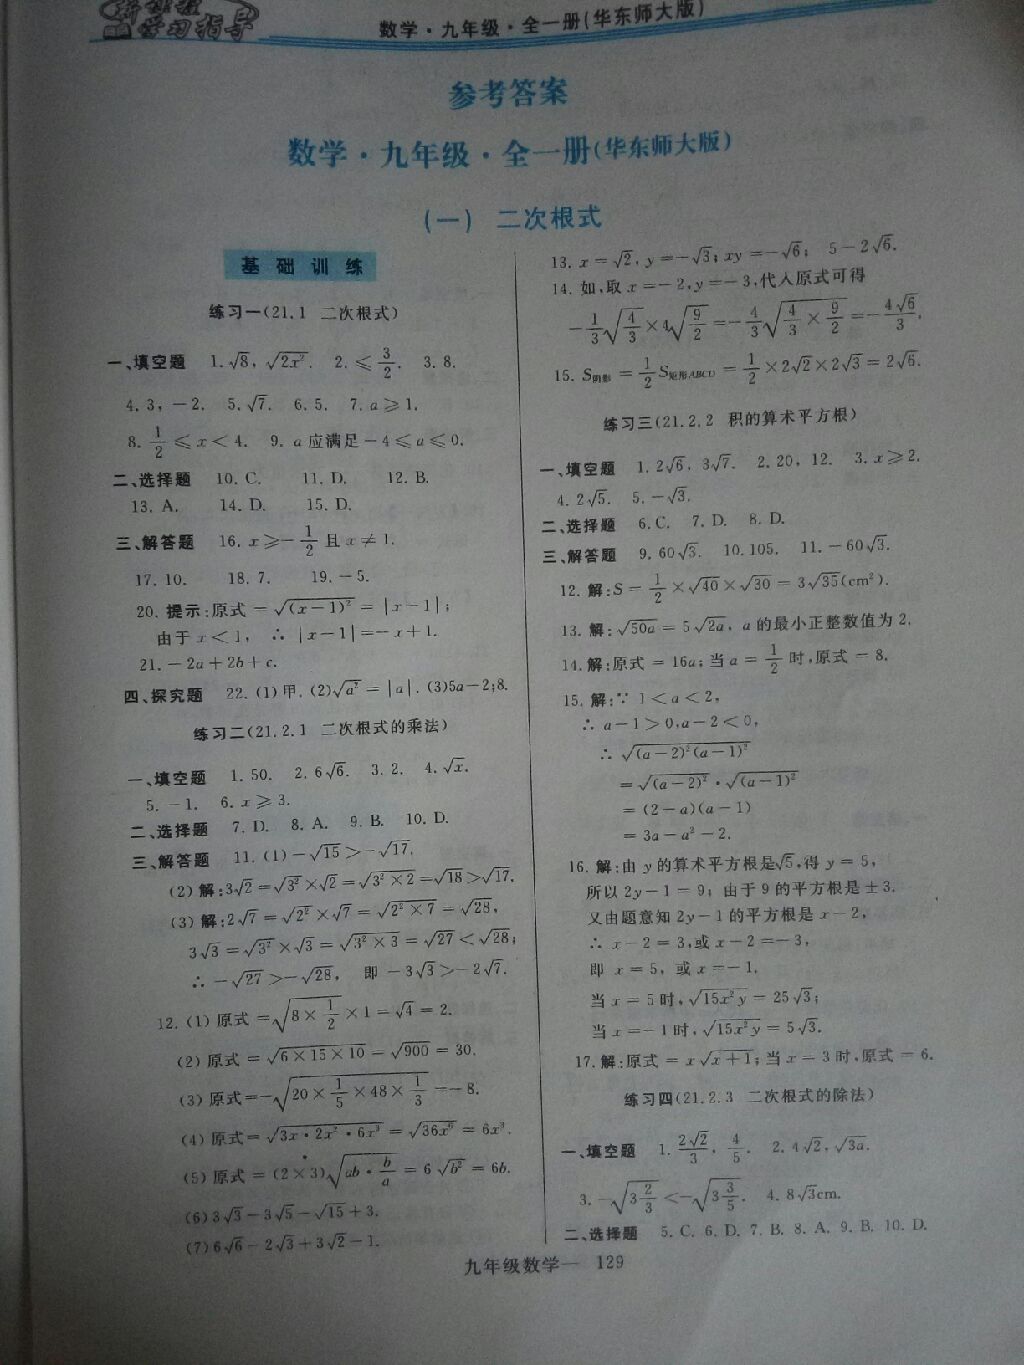 新课程
学习指导
数学·九年级·全一册(华东师大版)
参考答案
数学·九年级·全一册(华东师大版)
(一) 二次根式
基础训练
练习一(21.1 二次根式)
一、填空题 1.√8, √(2x²). 2.≤3/2. 3.8.
4.3,-2. 5.√7. 6.5. 7.a≥1.
8.1/2≤x<4. 9.a应满足-4≤a≤0.
二、选择题 10.C. 11.D. 12.B.
13.A. 14.D. 15.D.
三、解答题 16.x≥-1/2且x≠1.
17.10. 18.7. 19.-5.
20.提示:原式=√((x-1)²)=|x-1|;
由于x<1, ∴|x-1|=-x+1.
21.-2a+2b+c.
四、探究题 22.(1)甲.(2)√(a²)=|a|.(3)5a-2;8.
练习二(21.2.1 二次根式的乘法)
一、填空题 1.50. 2.6√6. 3.2. 4.√x.
5.-1. 6.x≥3.
二、选择题 7.D. 8.A. 9.B. 10.D.
三、解答题 11.(1)-√15>-√17.
(2)解:3√2=√(3²)×√2=√(3²×2)=√18>√17.
(3)解:2√7=√(2²)×√7=√(2²×7)=√28,
3√3=√(3²)×√3=√(3²×3)=√27<√28;
∴-√27>-√28, 即-3√3>-2√7.
12.(1)原式=√(8×1/2)×1=√4=2.
(2)原式=√(6×15×10)=√900=30.
(3)原式=-√(20×1/5×48×1/3)=-8.
(4)原式=√(3x·2x²·6x³)=√(36x⁶)=6x³.
(5)原式=(2×3)√(ab·b/a)=6√(b²)=6b.
(6)3√3-3√5-√15+3.
(7)6√6-2√3+3√2-1.
13.x=√2,y=-√3;xy=-√6; 5-2√6.
14.如,取x=-2,y=-3,代入原式可得
-1/3√(4/3)×4√(9/2)=-4/3√(4/3×9/2)=-4√6/3.
15.S阴影=1/2S矩形ABCD=1/2×2√2×2√3=2√6.
练习三(21.2.2 积的算术平方根)
一、填空题 1.2√6, 3√7. 2.20, 12. 3.x≥2.
4.2√5. 5.-√3.
二、选择题 6.C. 7.D. 8.D.
三、解答题 9.60√3. 10.105. 11.-60√3.
12.解:S=1/2×√40×√30=3√35(cm²).
13.解:√(50a)=5√(2a), a的最小正整数值为2.
14.解:原式=16a;当a=1/2时,原式=8.
15.解:∵1<a<2,
∴a-1>0,a-2<0,
∴√((a-2)²(a-1)²)
=√((a-2)²)·√((a-1)²)
=(2-a)(a-1)
=3a-a²-2.
16.解:由y的算术平方根是√5,得y=5,
所以2y-1=9; 由于9的平方根是±3.
又由题意知2y-1的平方根是x-2,
∴x-2=3,或x-2=-3,
即x=5, 或x=-1.
当x=5时,√(15x²y)=25√3;
当x=-1时,√(15x²y)=5√3.
17.解:原式=x√(x+1);当x=3时,原式=6.
练习四(21.2.3 二次根式的除法)
一、填空题 1.2√2/3, 4/5. 2.4√2, √(3a).
3.-√(3 2/3)<-√(3 3/5). 4.8√3cm.
二、选择题 5.C. 6.D. 7.B. 8.A. 9.B. 10.D.
九年级数学— 129